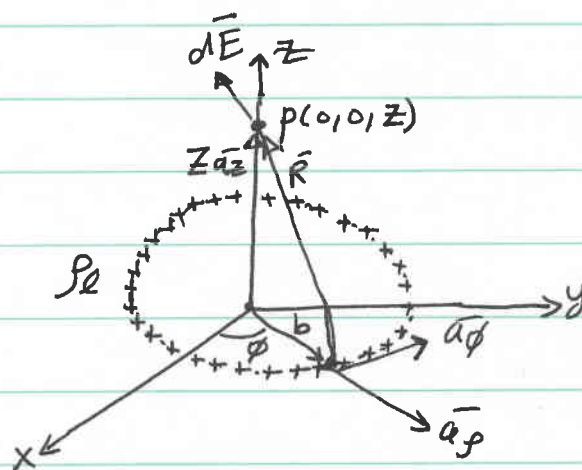 dE̅ z
p(0,0,z)
za̅z R̅
ρℓ
y
b
ϕ a̅ϕ
a̅ρ
x